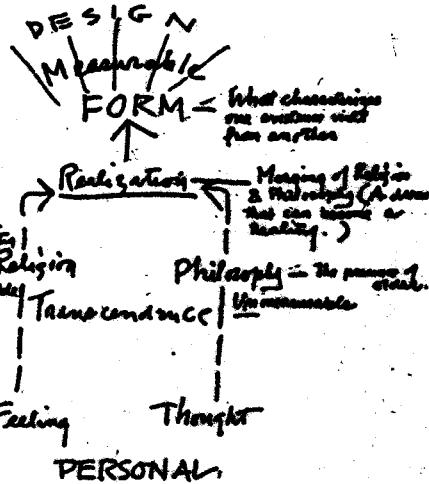 DESIGN
Measurable
FORM — What characterizes
one existence
from another
Realization — Merging of Religion
& Philosophy (A dream
that can become a
Reality.)
Religion
Philosophy — The presence of
order.
Transcendence
Unmeasurable
Feeling
Thought
PERSONAL